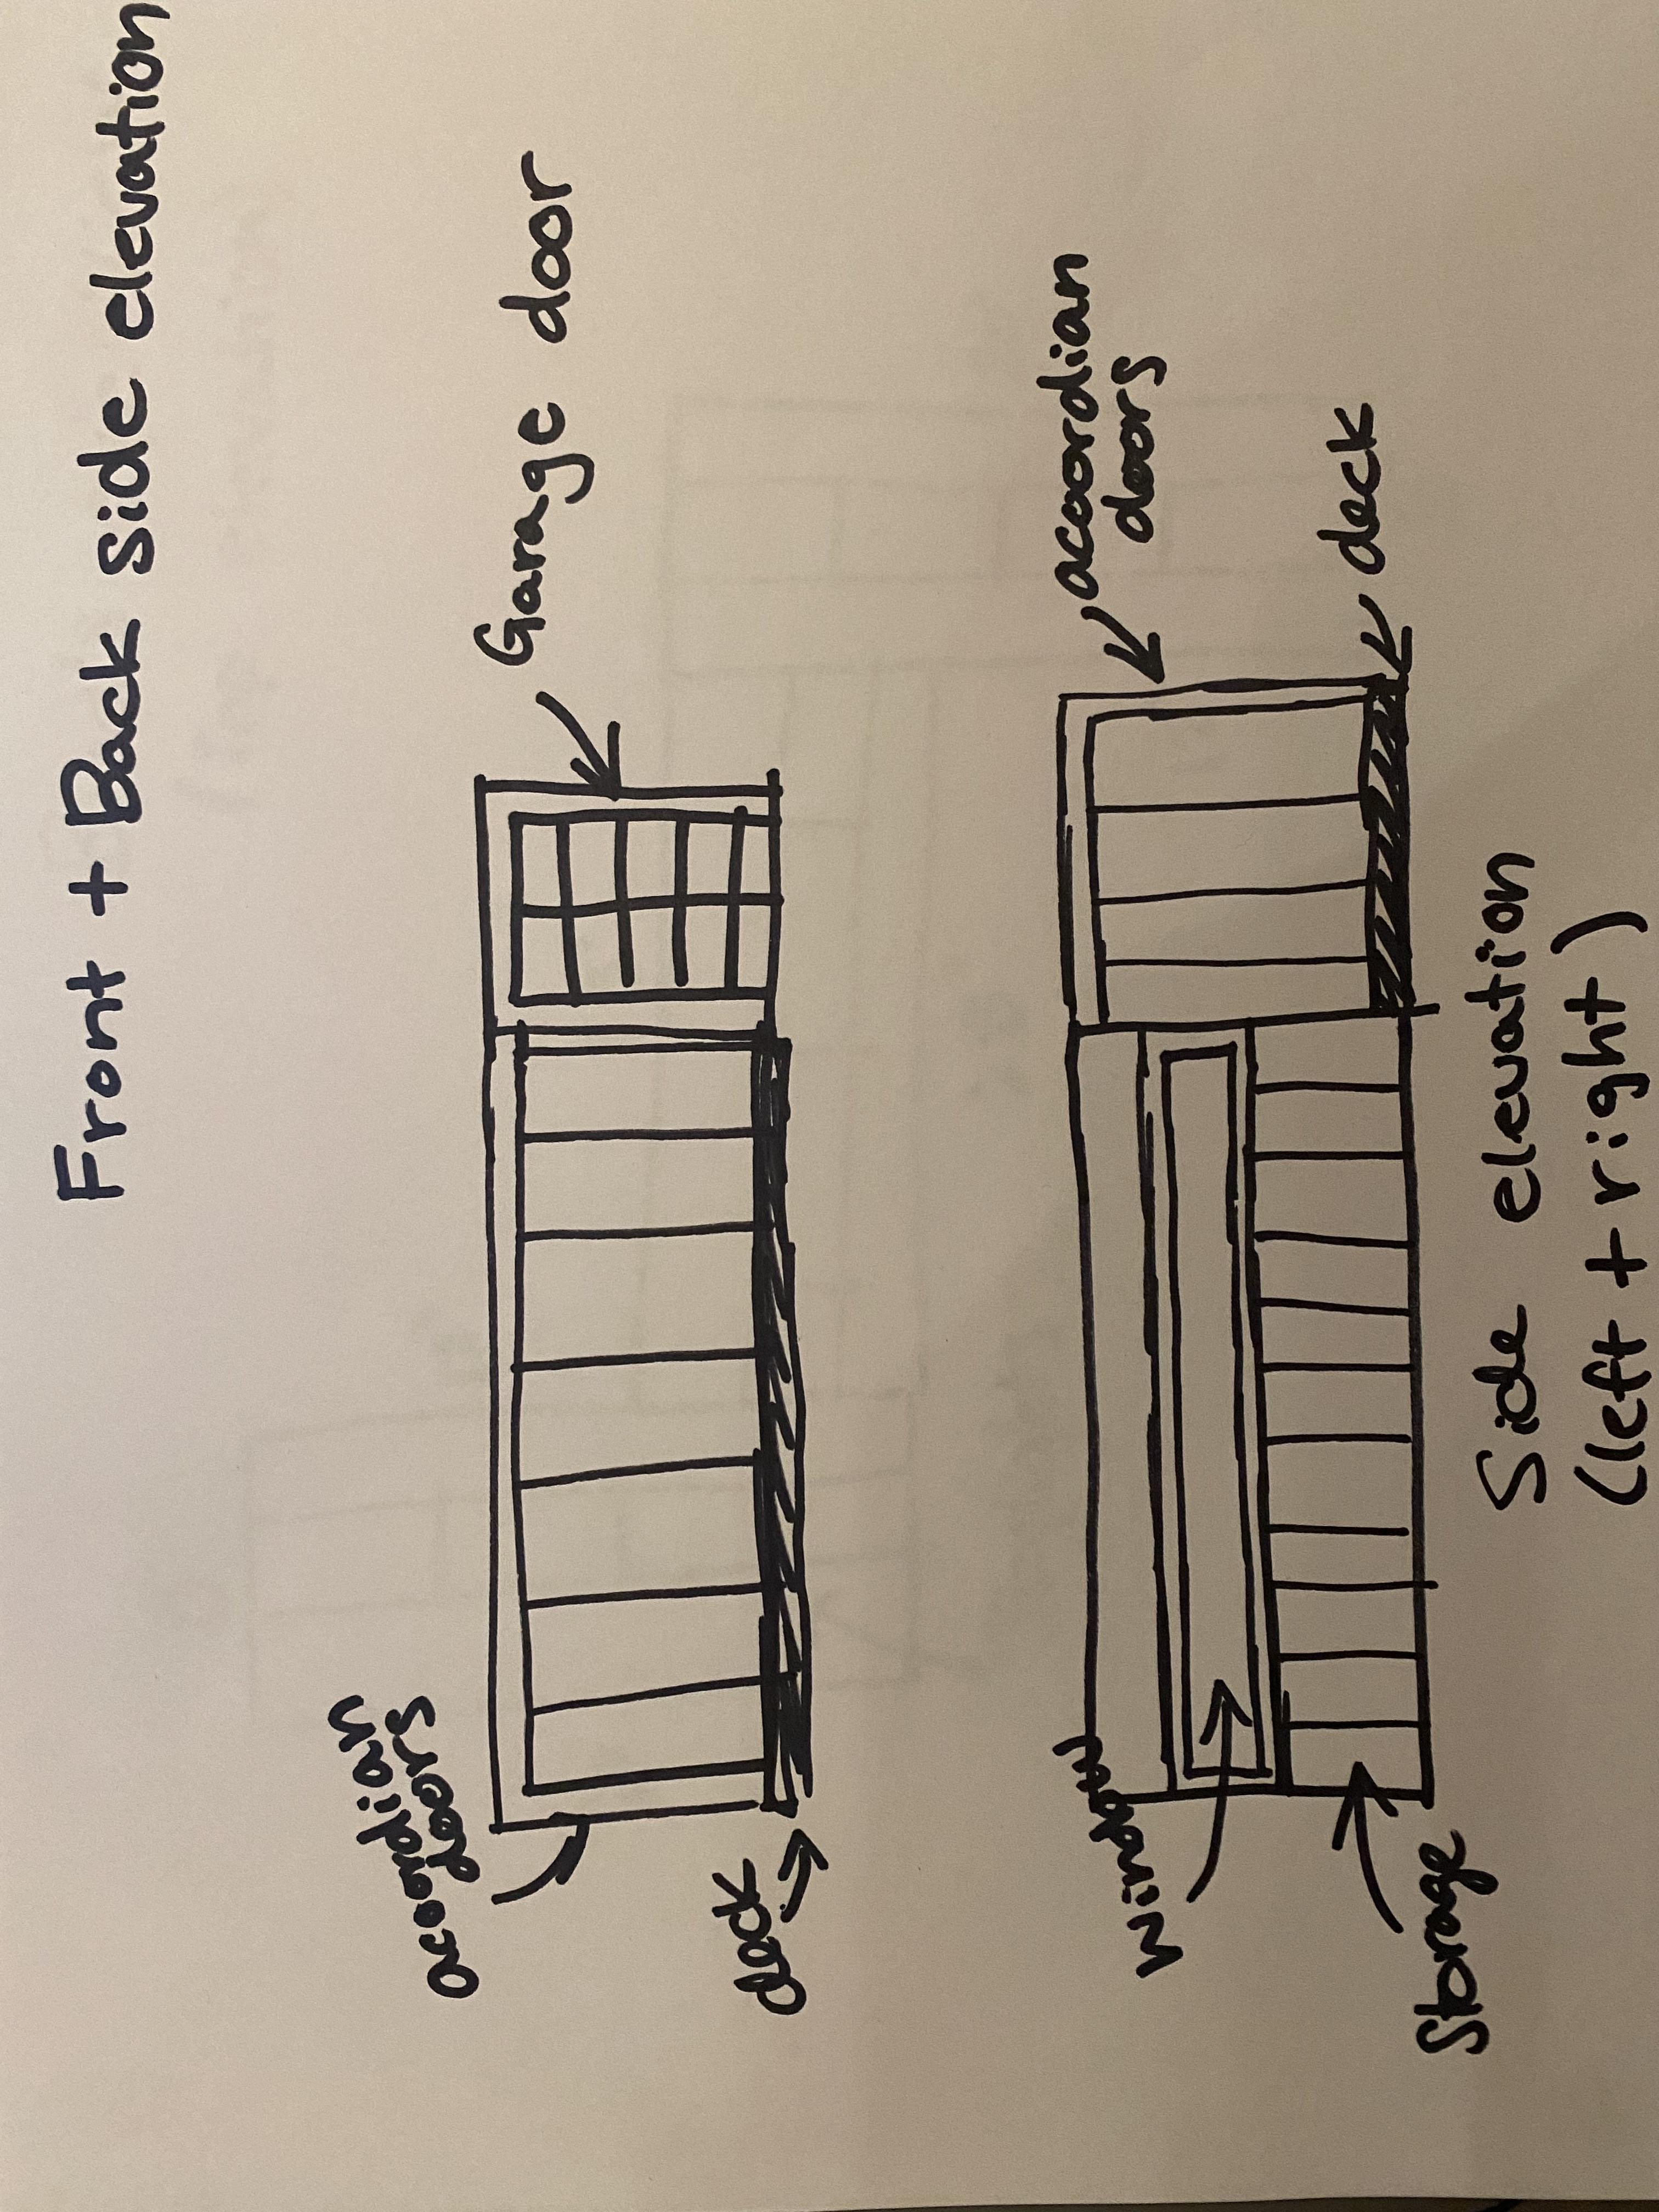 Front + Back side elevation
Garage door
acordian
doors
deck
acordian
doors
deck
window
Storage
Side elevation
(left + right)